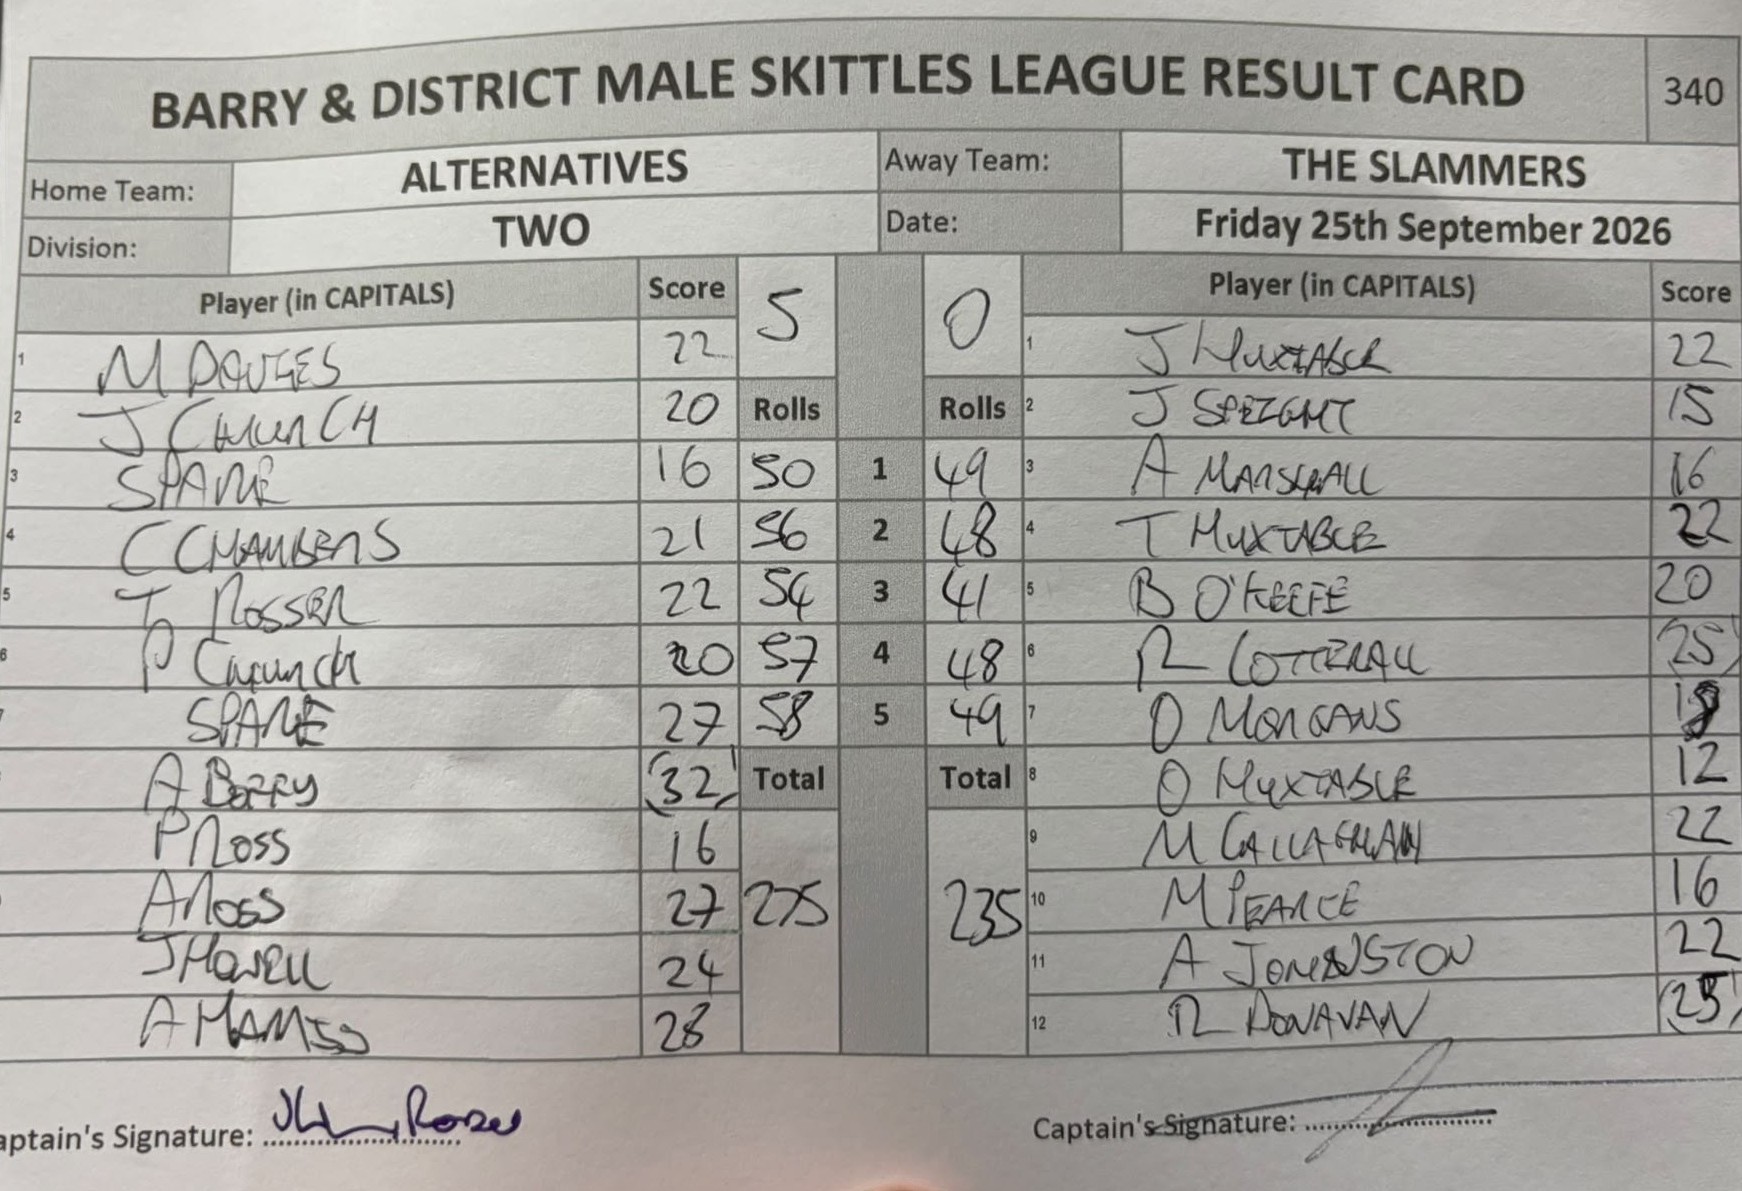 BARRY & DISTRICT MALE SKITTLES LEAGUE RESULT CARD 340
Home Team: ALTERNATIVES Away Team: THE SLAMMERS
Division: TWO Date: Friday 25th September 2026
Player (in CAPITALS) Score 5 0 Player (in CAPITALS) Score
1 M DAVIES 22 1 J HUXTABLE 22
2 J CHURCH 20 Rolls Rolls 2 J SPEIGHT 15
3 SPARE 16 50 1 49 3 A MARSHALL 16
4 C CHAMBERS 21 56 2 48 4 T HUXTABLE 22
5 T ROSSER 22 54 3 41 5 B O'KEEFE 20
6 P CHURCH 20 57 4 48 6 R COTTERALL 25
7 SPARE 27 58 5 49 7 O MORGANS
A BERRY 32 Total Total 8 O HUXTABLE 12
P ROSS 16 9 M CALLAGHAN 22
A ROSS 27 275 235 10 M PEARCE 16
J HOWELL 24 11 A JOHNSTON 22
A HARRIS 28 12 R DONAVAN 25
aptain's Signature: Captain's Signature: